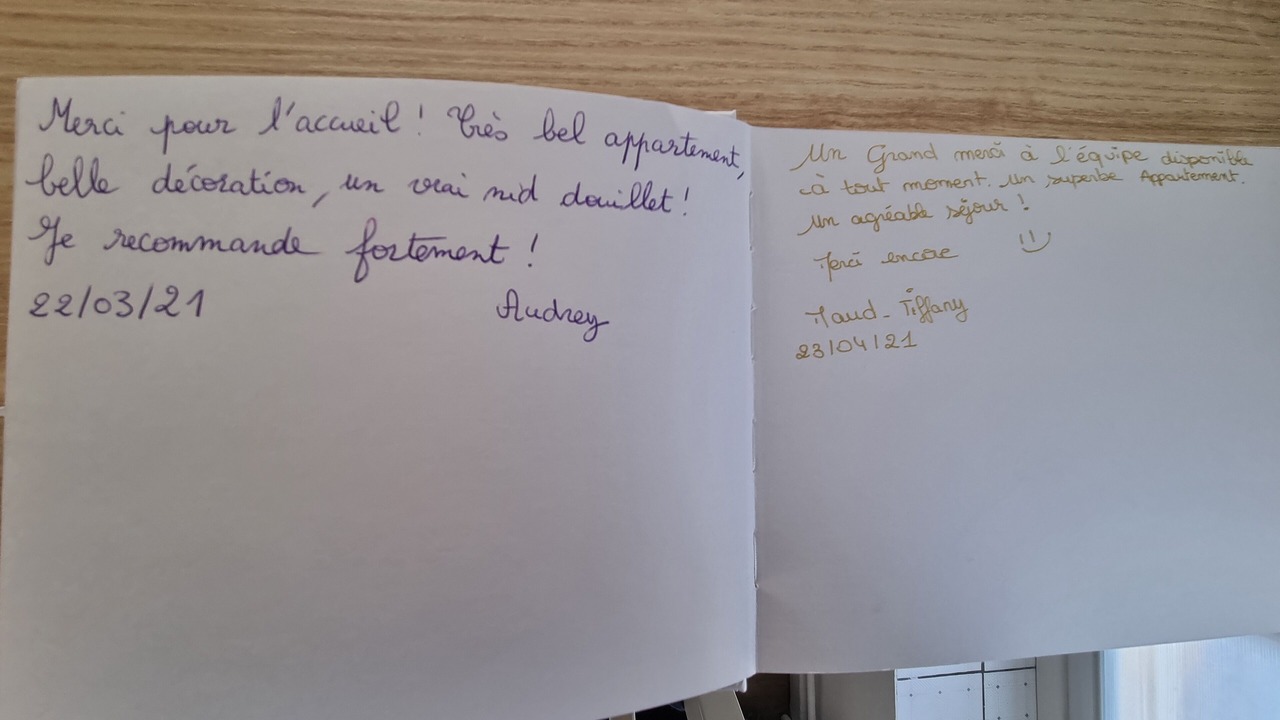 Merci pour l'accueil ! Très bel appartement,
belle décoration, un vrai nid douillet !
Je recommande fortement !
22/03/21 Audrey
Un Grand merci à l'équipe disponible
à tout moment. Un superbe Appartement.
Un agréable séjour !
Merci encore
Maud - Tiffany
23/04/21